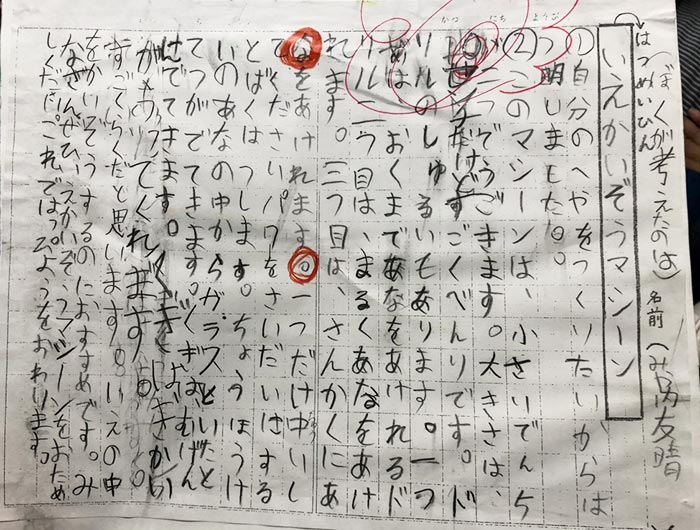 (ぼくが考えたのは) 名前(み内友晴
はつめいひん
いえかいぞうマシーン
①自分のへやをつくりたいからは
つ明しました。
②このマシーンは、小さいでんち
が一つでうごきます。大きさは、
10センチだけどすごくべんりです。ド
リルのしゅるいもあります。一つ
めは、おくまであなをあけれるド
リル二つ目は、まるくあなをあけ
れます。三つ目は、さんかくにあ
なをあけれます。一つだけ中いし
てくださいパワをさいだいにする
とばくはつします。ちょうほうけ
いのあなの中からガラスといたと
てつがでてきます。くぎはむげん
にでてきます。
がやってくれます
すごくらくだと思います。いえの中
をかいぞうするのにおすすめです。み
なさんぜひいえかいぞうマシーンをおため
しくださいこれではっぴょうをおわります。